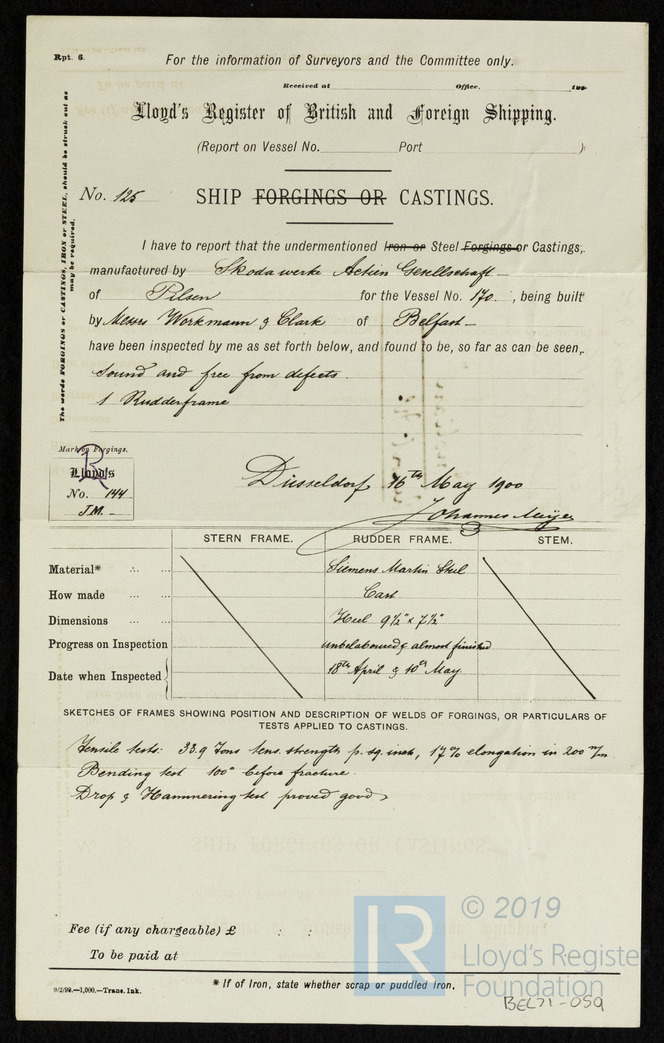 Rpt. 6.
For the information of Surveyors and the Committee only.
Received at Office.
Lloyd's Register of British and Foreign Shipping.
(Report on Vessel No. Port )
No. 125 SHIP FORGINGS OR CASTINGS.
The words FORGINGS or CASTINGS, IRON or STEEL, should be struck out as
may be required.
I have to report that the undermentioned Iron or Steel Forgings or Castings,
manufactured by Skodawerke Actien Gesellschaft
of Pilsen for the Vessel No. 170. , being built
by Messrs Workmann & Clark of Belfast
have been inspected by me as set forth below, and found to be, so far as can be seen,
sound and free from defects.
1 Rudderframe
Mark on Forgings.
R
Lloyd's
No. 144
J.M.
Düsseldorf 16th May 1900
Johannes Meyer
STERN FRAME. RUDDER FRAME. STEM.
Material* Siemens Martin Steel
How made Cast
Dimensions Heel 9½" x 7½"
Progress on Inspection unbelaboured & almost finished
Date when Inspected 18th April & 10th May
SKETCHES OF FRAMES SHOWING POSITION AND DESCRIPTION OF WELDS OF FORGINGS, OR PARTICULARS OF
TESTS APPLIED TO CASTINGS.
Tensile tests: 33.9 Tons tens. strength p. sq. inch, 17% elongation in 200 m/m
Bending test 100° before fracture.
Drop & Hammering test proved good
Fee (if any chargeable) £ : :
To be paid at
* If of Iron, state whether scrap or puddled Iron.
9/2/99.—1,000.—Trans. Ink.
LR
© 2019
Lloyd's Register
Foundation
BEL71-059